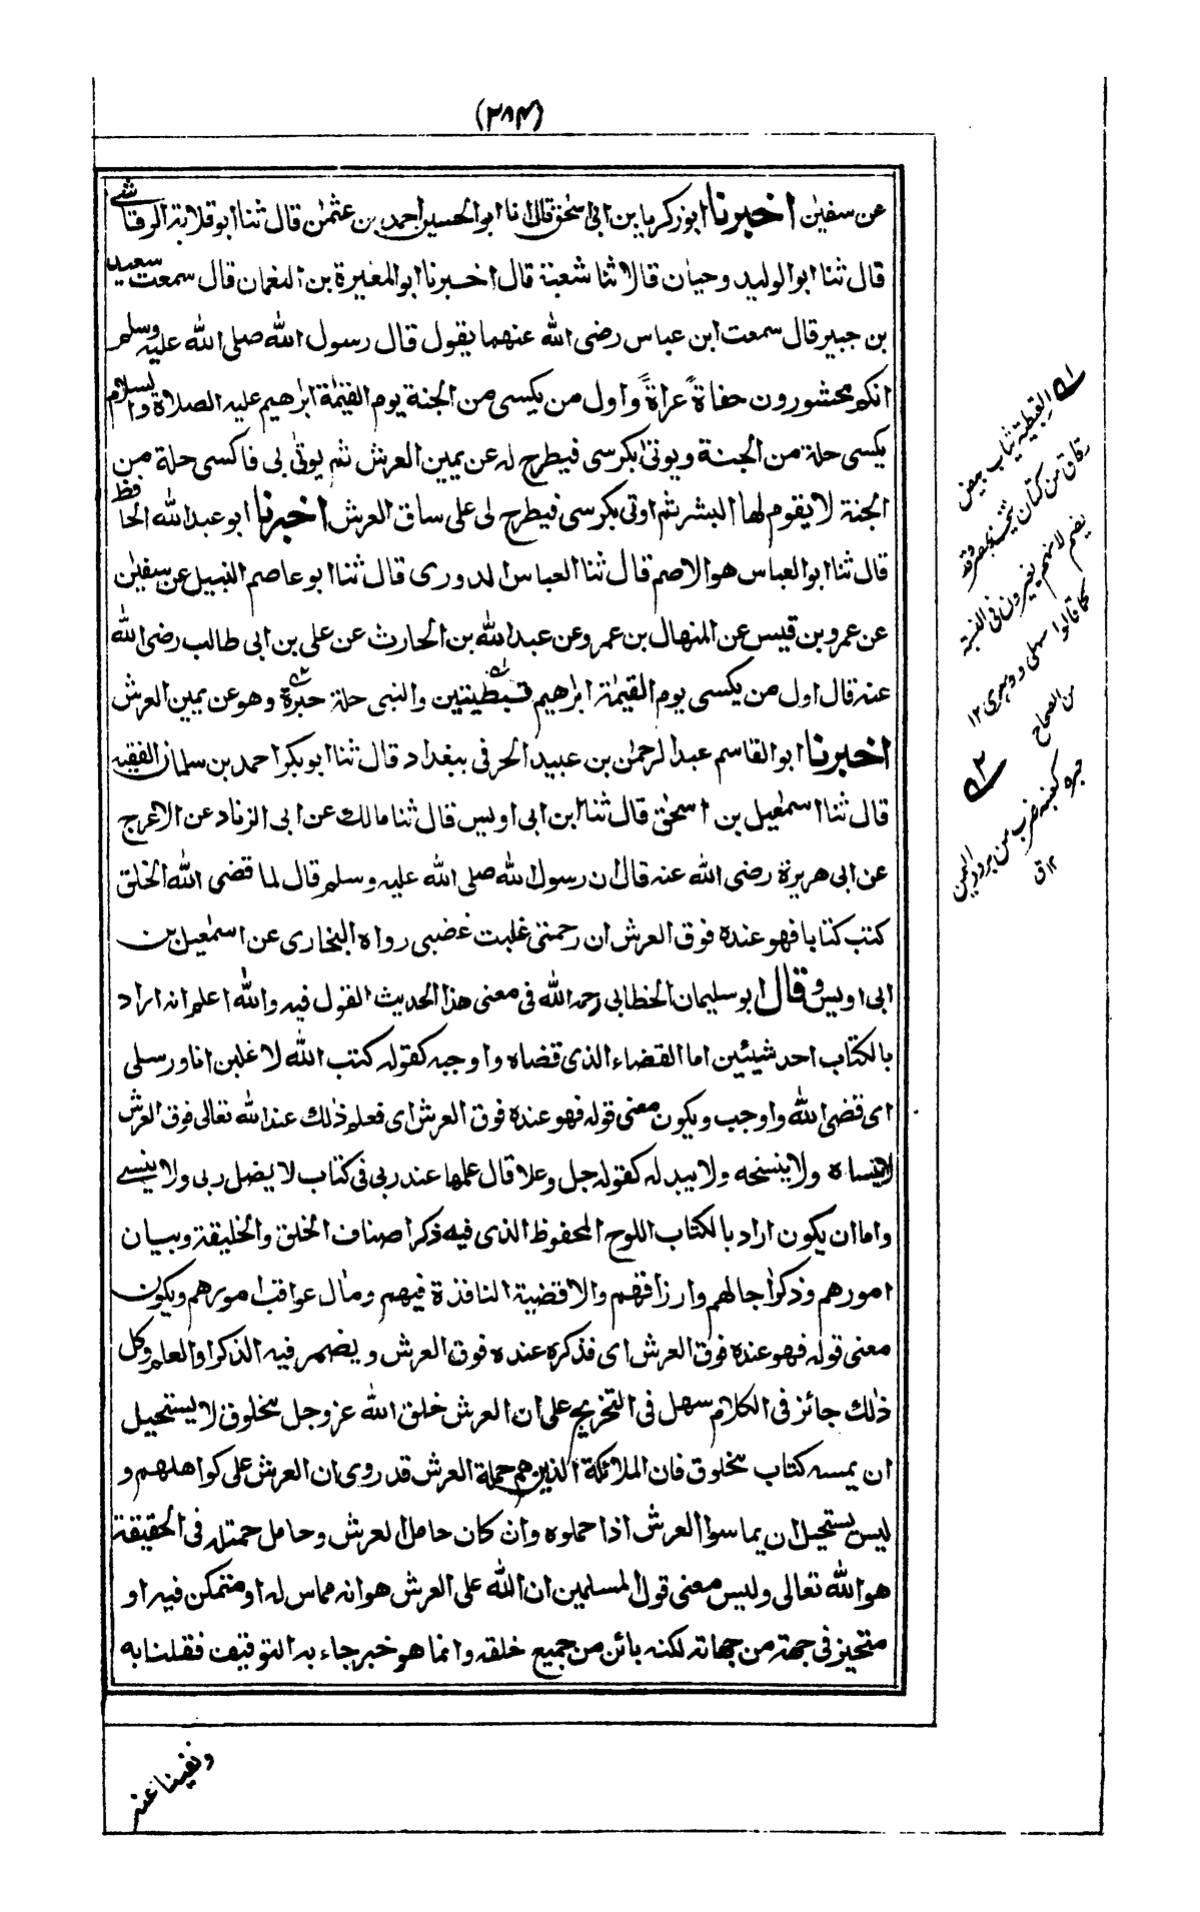 (٢٨٤)
عن سفيٰن اخبرنا ابو زكريا بن ابى اسحٰق قال انا ابو الحسين احمد بن عثمٰن قال ثنا ابو قلابة الرقاشى
قال ثنا ابو الوليد وحبان قالا ثنا شعبة قال اخبرنا ابو المغيرة بن النعمان قال سمعت سعيد
بن جبير قال سمعت ابن عباس رضى الله عنهما يقول قال رسول الله صلى الله عليه وسلم
انكم محشورون حفاةً عراةً واول من يكسى من الجنة يوم القيٰمة ابرٰهيم عليه الصلاة والسلام
يكسى حلة من الجنة ويوتىٰ بكرسى فيطرح له عن يمين العرش ثم يوتىٰ بى فاكسى حلة من
الجنة لا يقوم لها البشر ثم اوتى بكرسى فيطرح لى على ساق العرش اخبرنا ابو عبد الله الحافظ
قال ثنا ابو العباس هو الاصم قال ثنا العباس الدورى قال ثنا ابو عاصم النبيل عن سفيٰن
عن عمرو بن قيس عن المنهال بن عمرو عن عبد الله بن الحارث عن على بن ابى طالب رضى الله
عنه قال اول من يكسى يوم القيٰمة ابرٰهيم قبطيتين والنبى حلة حبرة وهو عن يمين العرش
اخبرنا ابو القاسم عبد الرحمٰن بن عبيد الحرفى ببغداد قال ثنا ابو بكر احمد بن سلمان الفقيه
قال ثنا اسمٰعيل بن اسحٰق قال ثنا ابن ابى اويس قال ثنا مالك عن ابى الزناد عن الاعرج
عن ابى هريرة رضى الله عنه قال ان رسول الله صلى الله عليه وسلم قال لما قضى الله الخلق
كتب كتابا فهو عنده فوق العرش ان رحمتى غلبت غضبى رواه البخارى عن اسمٰعيل بن
ابى اويس وقال ابو سليمان الخطابى رحمه الله فى معنى هذا الحديث القول فيه والله اعلم انه اراد
بالكتاب احد شيئين اما القضاء الذى قضاه واوجبه كقوله كتب الله لاغلبن انا ورسلى
اى قضى الله واوجب ويكون معنى قوله فهو عنده فوق العرش اى فعلم ذٰلك عند الله تعالى فوق العرش
لا ينساه ولا ينسخه ولا يبدله كقوله جل وعلا قال علمها عند ربى فى كتاب لا يضل ربى ولا ينسى
واما ان يكون اراد بالكتاب اللوح المحفوظ الذى فيه ذكر اصناف الخلق والخليقة وبيان
امورهم وذكر اٰجالهم وارزاقهم والاقضية النافذة فيهم ومآل عواقب امورهم ويكون
معنى قوله فهو عنده فوق العرش اى فذكره عنده فوق العرش ويضمر فيه الذكر او العلم وكل
ذٰلك جائز فى الكلام سهل فى التخريج على ان العرش خلق الله عز وجل مخلوق لا يستحيل
ان يمسه كتاب مخلوق فان الملائكة الذين هم حملة العرش قد روى ان العرش على كواهلهم و
ليس يستحيل ان يماسوا العرش اذا حملوه وان كان حامل العرش وحامل حملته فى الحقيقة
هو الله تعالى وليس معنى قول المسلمين ان الله على العرش هو انه مماس له او متمكن فيه او
متحيز فى جهة من جهاته لكنه بائن من جميع خلقه وانما هو خبر جاء به التوقيف فقلنا به
ونفينا عنه
١ القبطية ثياب بيض
رقاق من كتان تتخذ بمصر وقد
يضم لانهم يغيرون فى النسبة
كما قالوا سهلى ودهرى ١٢
من الصحاح
٢
حبرة كعنبة ضرب من برود اليمن
١٢ ق